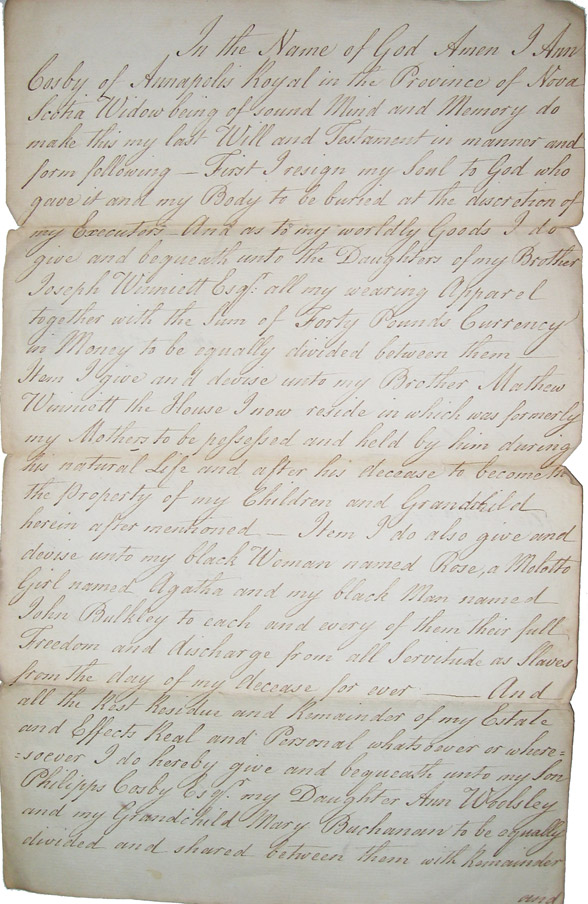 In the Name of God Amen I Ann
Cosby of Annapolis Royal in the Province of Nova
Scotia Widow being of sound Mind and Memory do
make this my last Will and Testament in manner and
form following — First I resign my Soul to God who
gave it and my Body to be buried at the discretion of
my Executors And as to my worldly Goods I do
give and bequeath unto the Daughters of my Brother
Joseph Winniett Esqr: all my wearing Apparel
together with the Sum of Forty Pounds Currency
in Money to be equally divided between them —
Item I give and devise unto my Brother Mathew
Winniett the House I now reside in which was formerly
my Mothers to be possessed and held by him during
his natural Life and after his decease to become
the Property of my Children and Grandchild
herein after mentioned — Item I do also give and
devise unto my black Woman named Rose, a Molatto
Girl named Agatha and my black Man named
John Bulkley to each and every of them their full
Freedom and discharge from all Servitude as Slaves
from the day of my decease for ever —— And
all the Rest Residue and Remainder of my Estate
and Effects Real and Personal whatsoever or where=
=soever I do hereby give and bequeath unto my Son
Philipps Cosby Esqr my Daughter Ann
and my Grandchild Mary Buchanan to be equally
divided and shared between them with Remainder
and